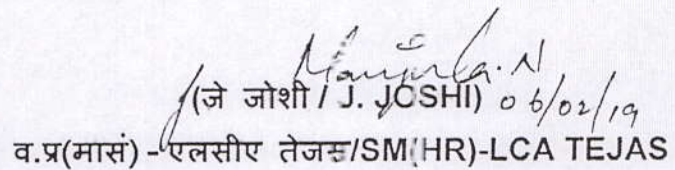 Manjula.N
(जे जोशी / J. JOSHI) 06/02/19
व.प्र(मासं) - एलसीए तेजस/SM(HR)-LCA TEJAS